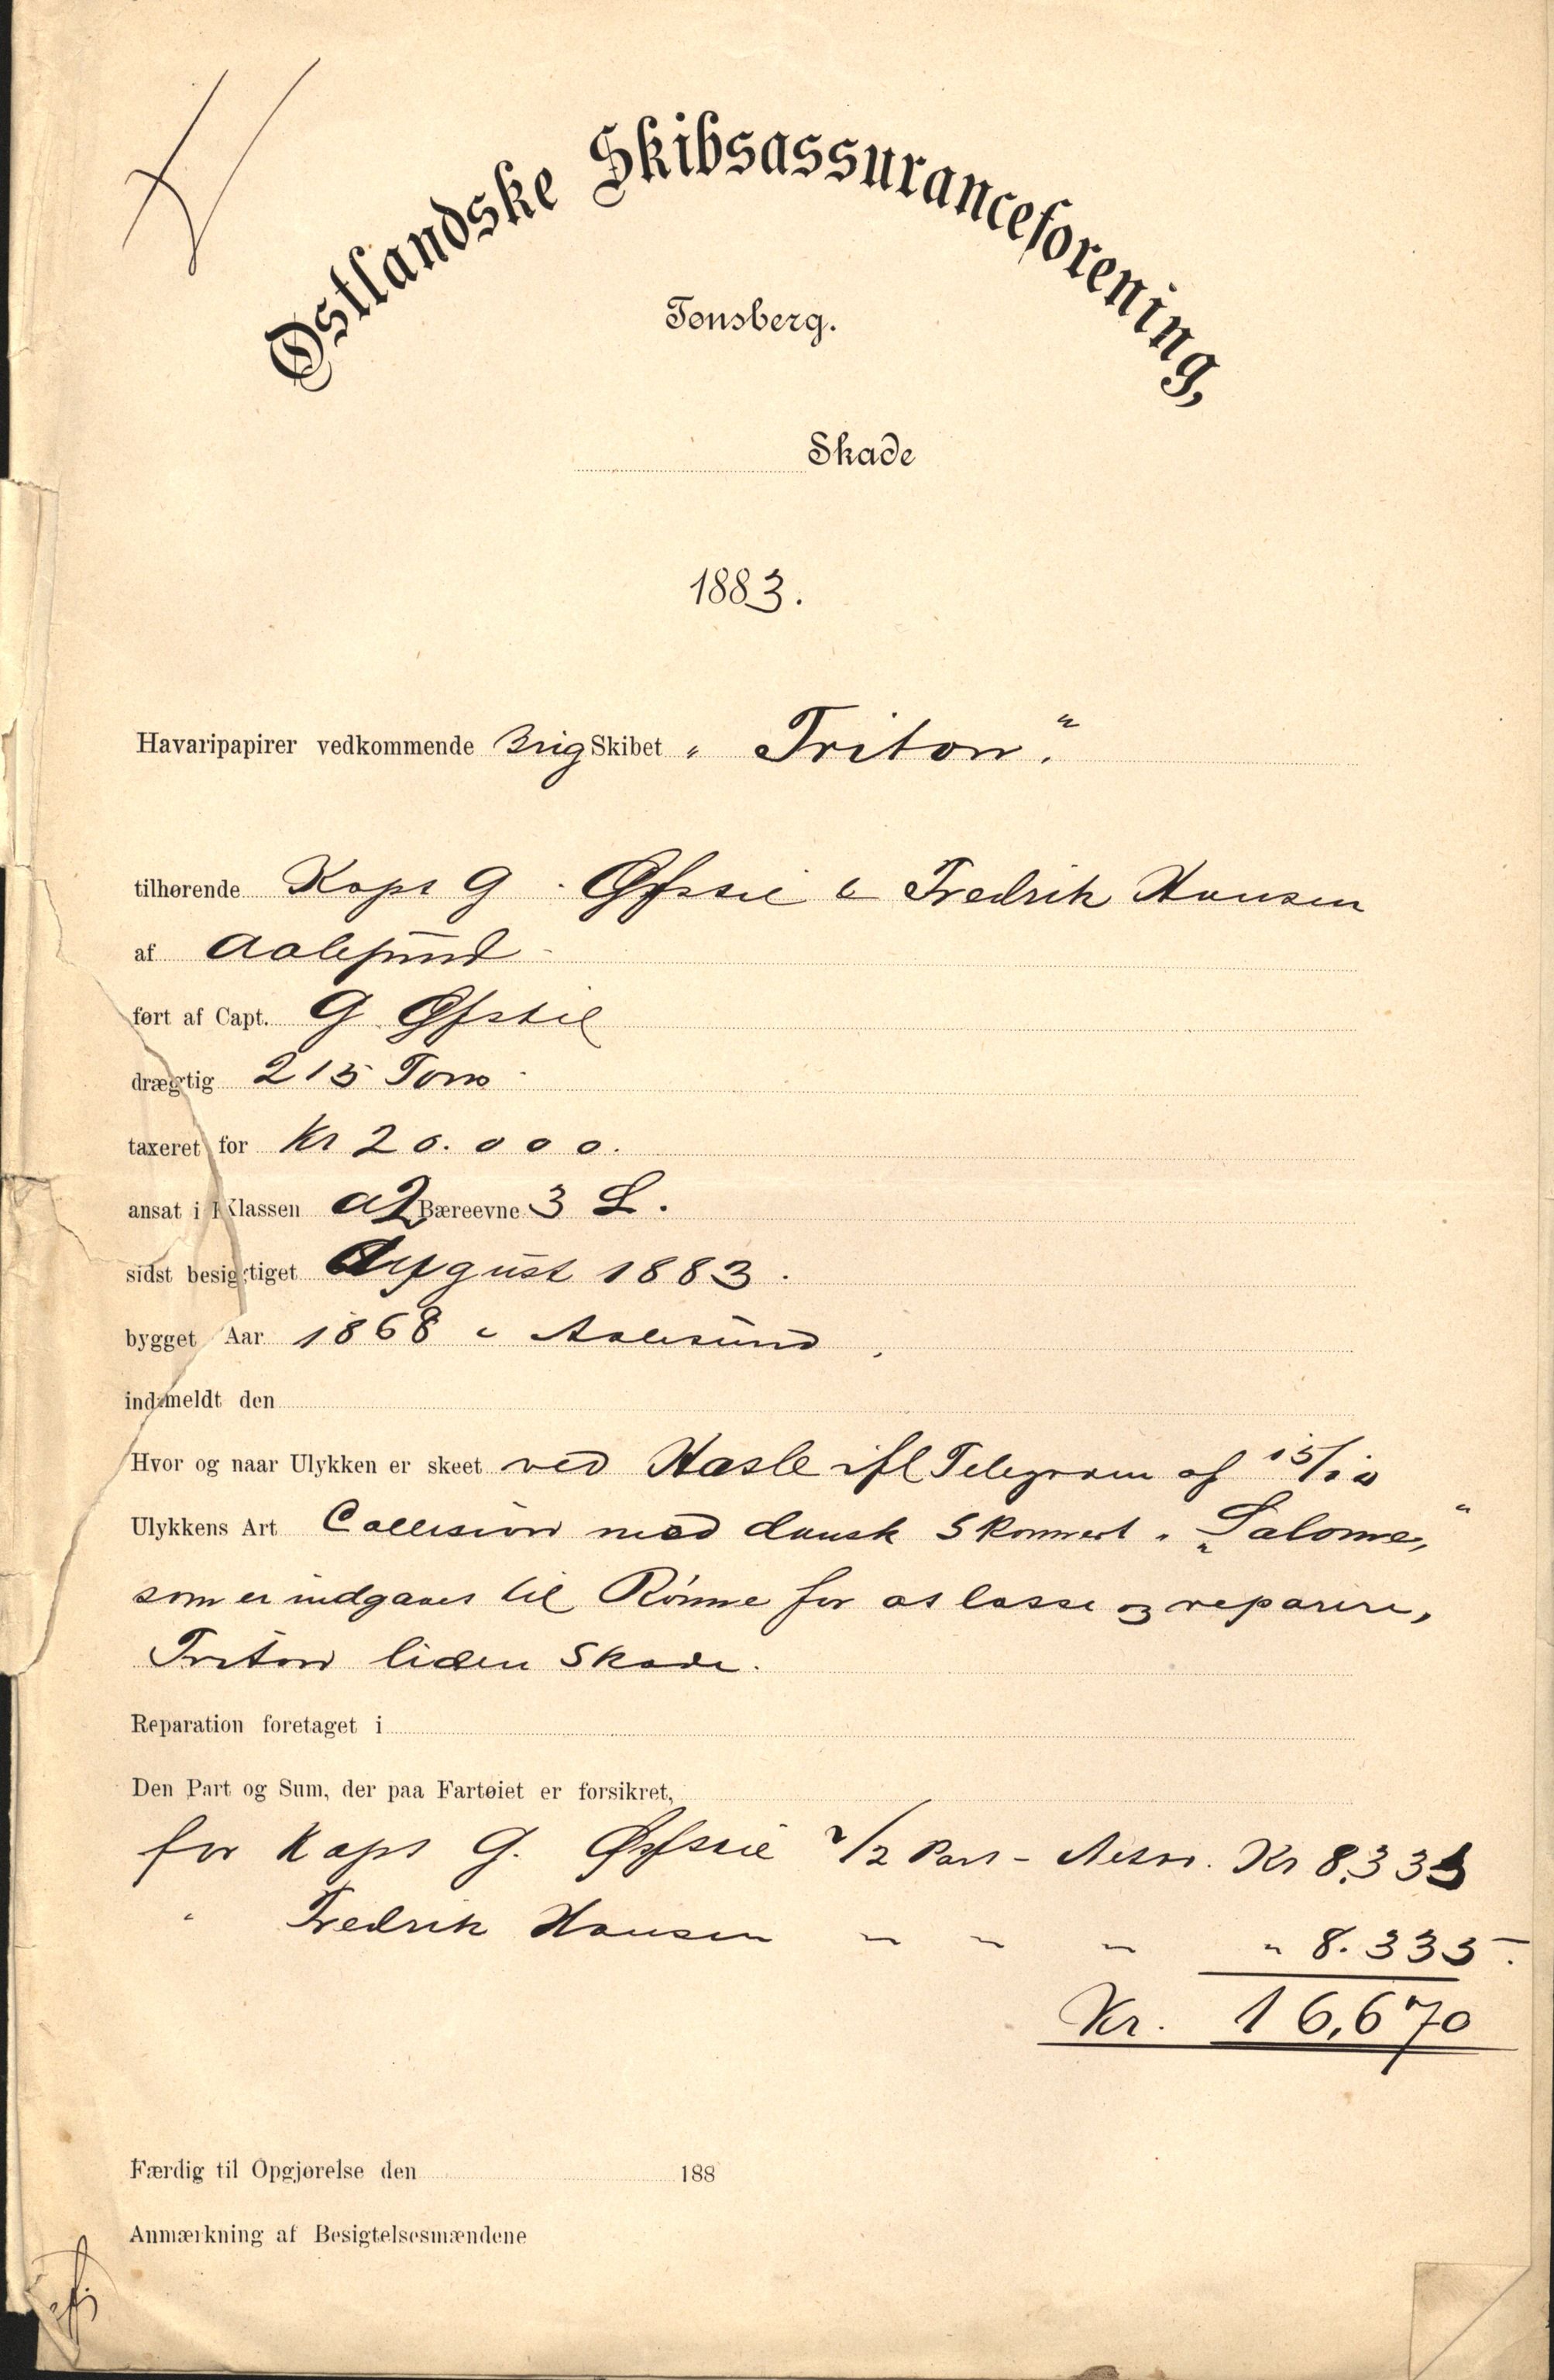 Østlandske Skibsassuranceforening,
Tønsberg.
Skade
1883.
Havaripapirer vedkommende Brig Skibet „ Triton “.
tilhørende Kapt G. Øfstie & Fredrik Hansen
af Aalesund
ført af Capt. G Øfstie
drægtig 215 Tons
taxeret for Kr 20.000.
ansat i Klassen A2 Bæreevne 3 L.
sidst besigtiget August 1883.
bygget Aar 1868 i Aalesund.
indmeldt den
Hvor og naar Ulykken er skeet ved Hasle ifl Telegram af 15/10
Ulykkens Art Collision med dansk Skonnert „Salome,“
som er indgaaet til Rønne for at losse og reparere,
Triton liden Skade.
Reparation foretaget i
Den Part og Sum, der paa Fartøiet er forsikret,
for Kapt G. Øfstie 1/2 Part - Kr 8.335
" Fredrik Hansen " " " " 8.335-.
Kr. 16,670
Færdig til Opgjørelse den 188
Anmærkning af Besigtelsesmændene